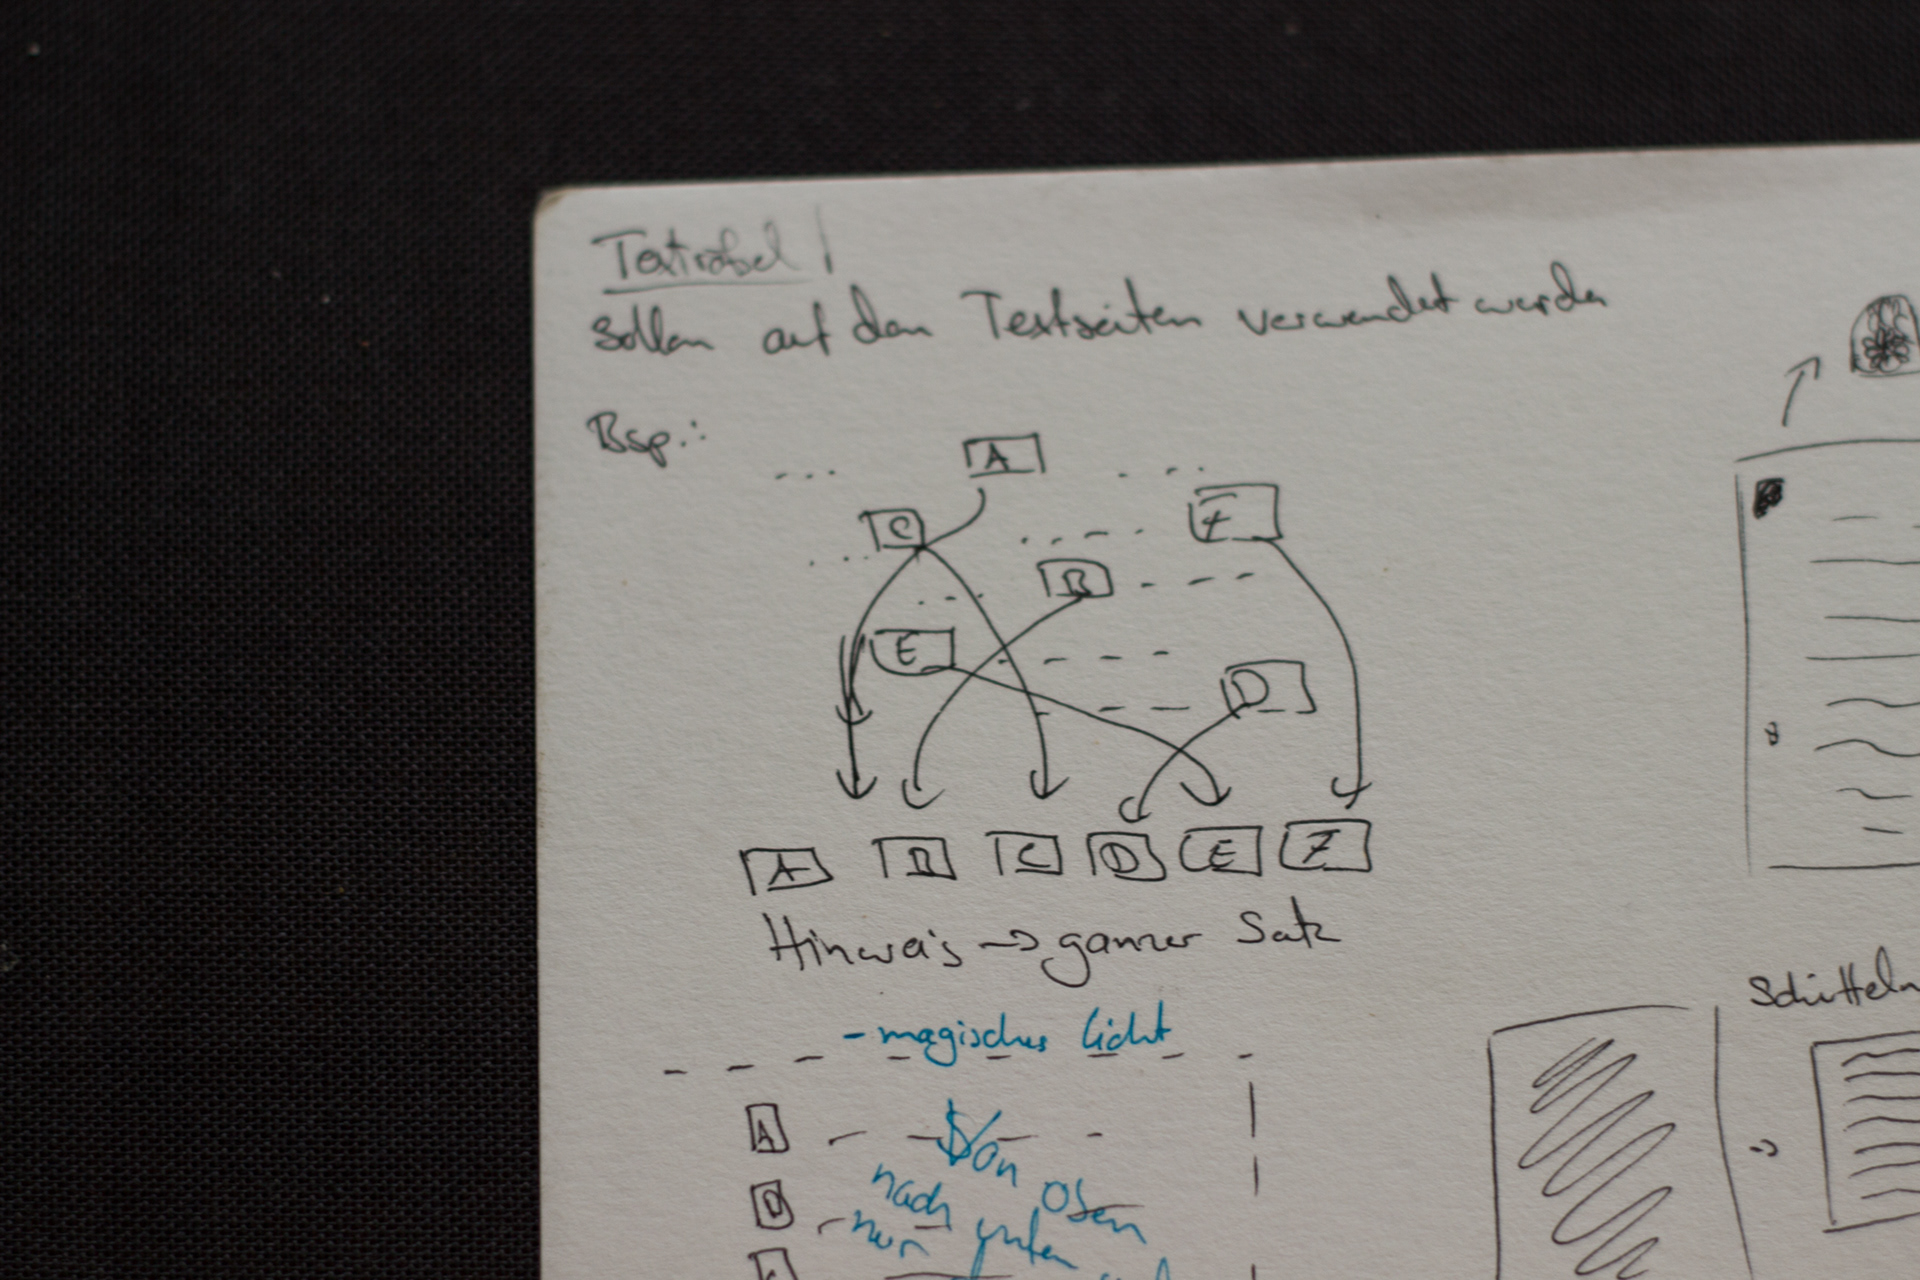 Texträtsel
sollen auf den Textseiten verwendet werden
Bsp.:
A
C
F
B
E
D
A B C D E F
Hinweis → ganzer Satz
Schütteln
- magisches Licht
A
Von Oben
D
nach unten
nur